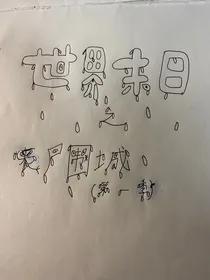 世界来日
之
丧尸围城
(第一章)